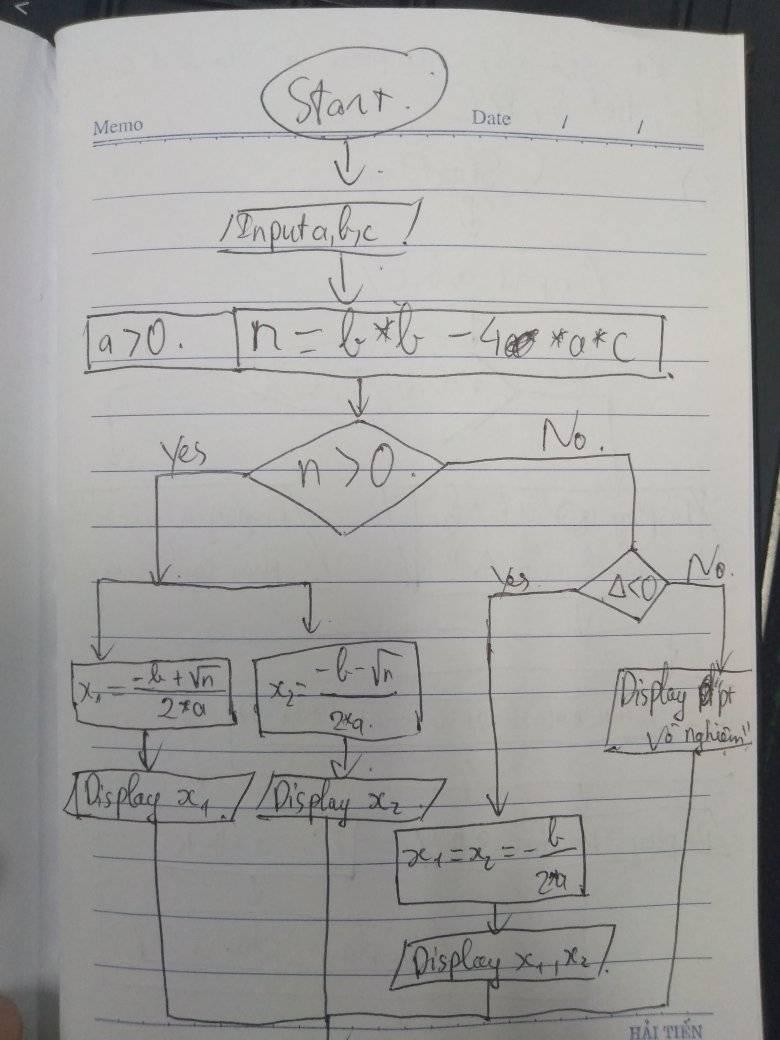 Start.
Memo
Date / /
Input a, b, c
a > 0.
n = b * b - 4 * a * c
Yes
n > 0.
No.
Yes
Δ < 0
No.
x1 = -b + √n / 2 * a
x2 = -b - √n / 2 * a.
Display "pt
vô nghiệm"
Display x1
Display x2
x1 = x2 = - b / 2 * a
Display x1, x2
HẢI TIẾN